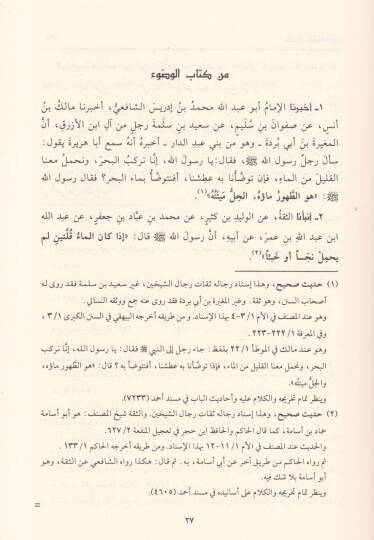 من كتاب الوضوء
١ـ أخبرنا الإمامُ أبو عبد الله محمدُ بنُ إدريسَ الشافعيُّ، أخبرنا مالكُ بنُ
أنسٍ، عن صفوانَ بنِ سُلَيمٍ، عن سعيد بنِ سلمة رجلٍ من آل ابن الأزرقِ، أنَّ
المغيرةَ بنَ أبي بُردةَ ـ وهو من بني عبدِ الدار ـ أخبرهُ أنه سمع أبا هريرةَ يقول:
سألَ رجلٌ رسولَ الله ﷺ، فقال: يا رسولَ الله، إنَّا نركبُ البحرَ، ونحملُ معنا
القليلَ من الماءِ، فإن توضَّأنا به عطِشنا، أفنتوضَّأُ بماء البحرِ؟ فقال رسولُ الله
ﷺ: «هو الطَّهورُ ماؤهُ، الحِلُّ ميتَتُهُ»(١).
٢ـ أنبأنا الثقةُ، عن الوليدِ بنِ كثيرٍ، عن محمد بنِ عبَّادِ بنِ جعفرٍ، عن عبد الله
ابنِ عبدِ الله بنِ عمرَ، عن أبيهِ، أنَّ رسولَ الله ﷺ قال: «إذا كان الماءُ قُلَّتينِ لم
يحمِلْ نجَساً أو خَبثاً»(٢).
(١) حديث صحيح، وهذا إسناد رجاله ثقات رجال الشيخين، غير سعيد بن سلمة فقد روى له
أصحاب السنن، وهو ثقة. وغير المغيرة بن أبي بردة فقد روى عنه جمع ووثقه النسائي.
وهو عند المصنف في الأم ٣/١-٤ بهذا الإسناد. ومن طريقه أخرجه البيهقي في السنن الكبرى ٣/١،
وفي المعرفة ٢٢٢/١-٢٢٣.
وهو عند مالك في الموطأ ٢٢/١ بلفظ: جاء رجل إلى النبي ﷺ فقال: يا رسول الله، إنَّا نركب
البحر، ونحمل معنا القليل من الماء، فإن توضَّأنا به عطشنا، أفنتوضأ به؟ قال: «هو الطهور ماؤه،
والحِلُّ ميتَتُه».
وينظر تمام تخريجه والكلام عليه وأحاديث الباب في مسند أحمد (٧٢٣٣).
(٢) حديث صحيح، وهذا إسناد رجاله ثقات رجال الشيخين. والثقة شيخ المصنف: هو أبو أسامة
حماد بن أسامة، كما قال الحاكم والحافظ ابن حجر في تعجيل المنفعة ٦٢٧/٢.
والحديث عند المصنف في الأم ١١/١-١٢ بهذا الإسناد. ومن طريقه أخرجه الحاكم ١٣٣/١.
ثم رواه الحاكم من طريق آخر عن أبي أسامة، به. ثم قال: هكذا رواه الشافعي عن الثقة، وهو
أبو أسامة بلا شك فيه.
وينظر تمام تخريجه والكلام على أسانيده في مسند أحمد (٤٦٠٥).
=
٢٧